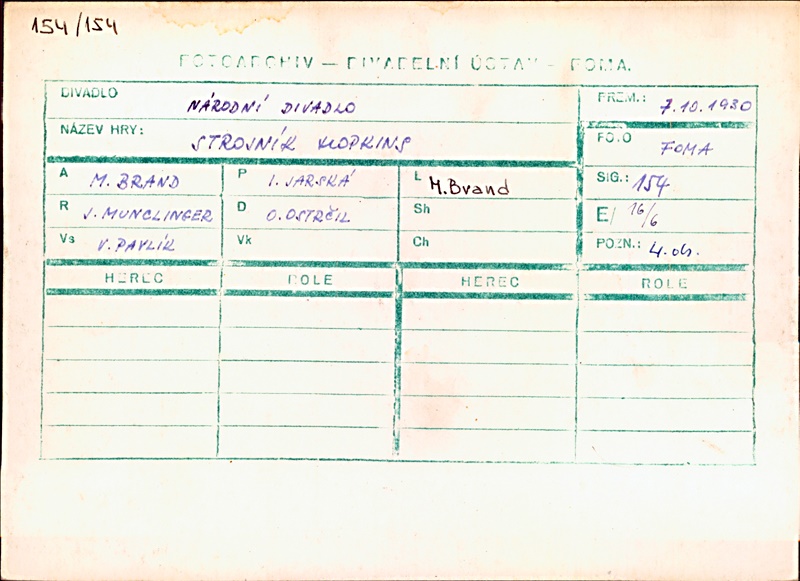 154/154
FOTOARCHIV — DIVADELNÍ ÚSTAV - FOMA.
DIVADLO NÁRODNÍ DIVADLO PREM.: 7.10.1930
NÁZEV HRY: STROJNÍK HOPKINS FOTO FOMA
A M. BRAND P I. JARSKÁ L M.Brand SIG.: 154
R J. MUNCLINGER D O. OSTRČIL Sh E/ 16/6
Vs V. PAVLÍK Vk Ch POZN.: 4. ob.
HEREC ROLE HEREC ROLE